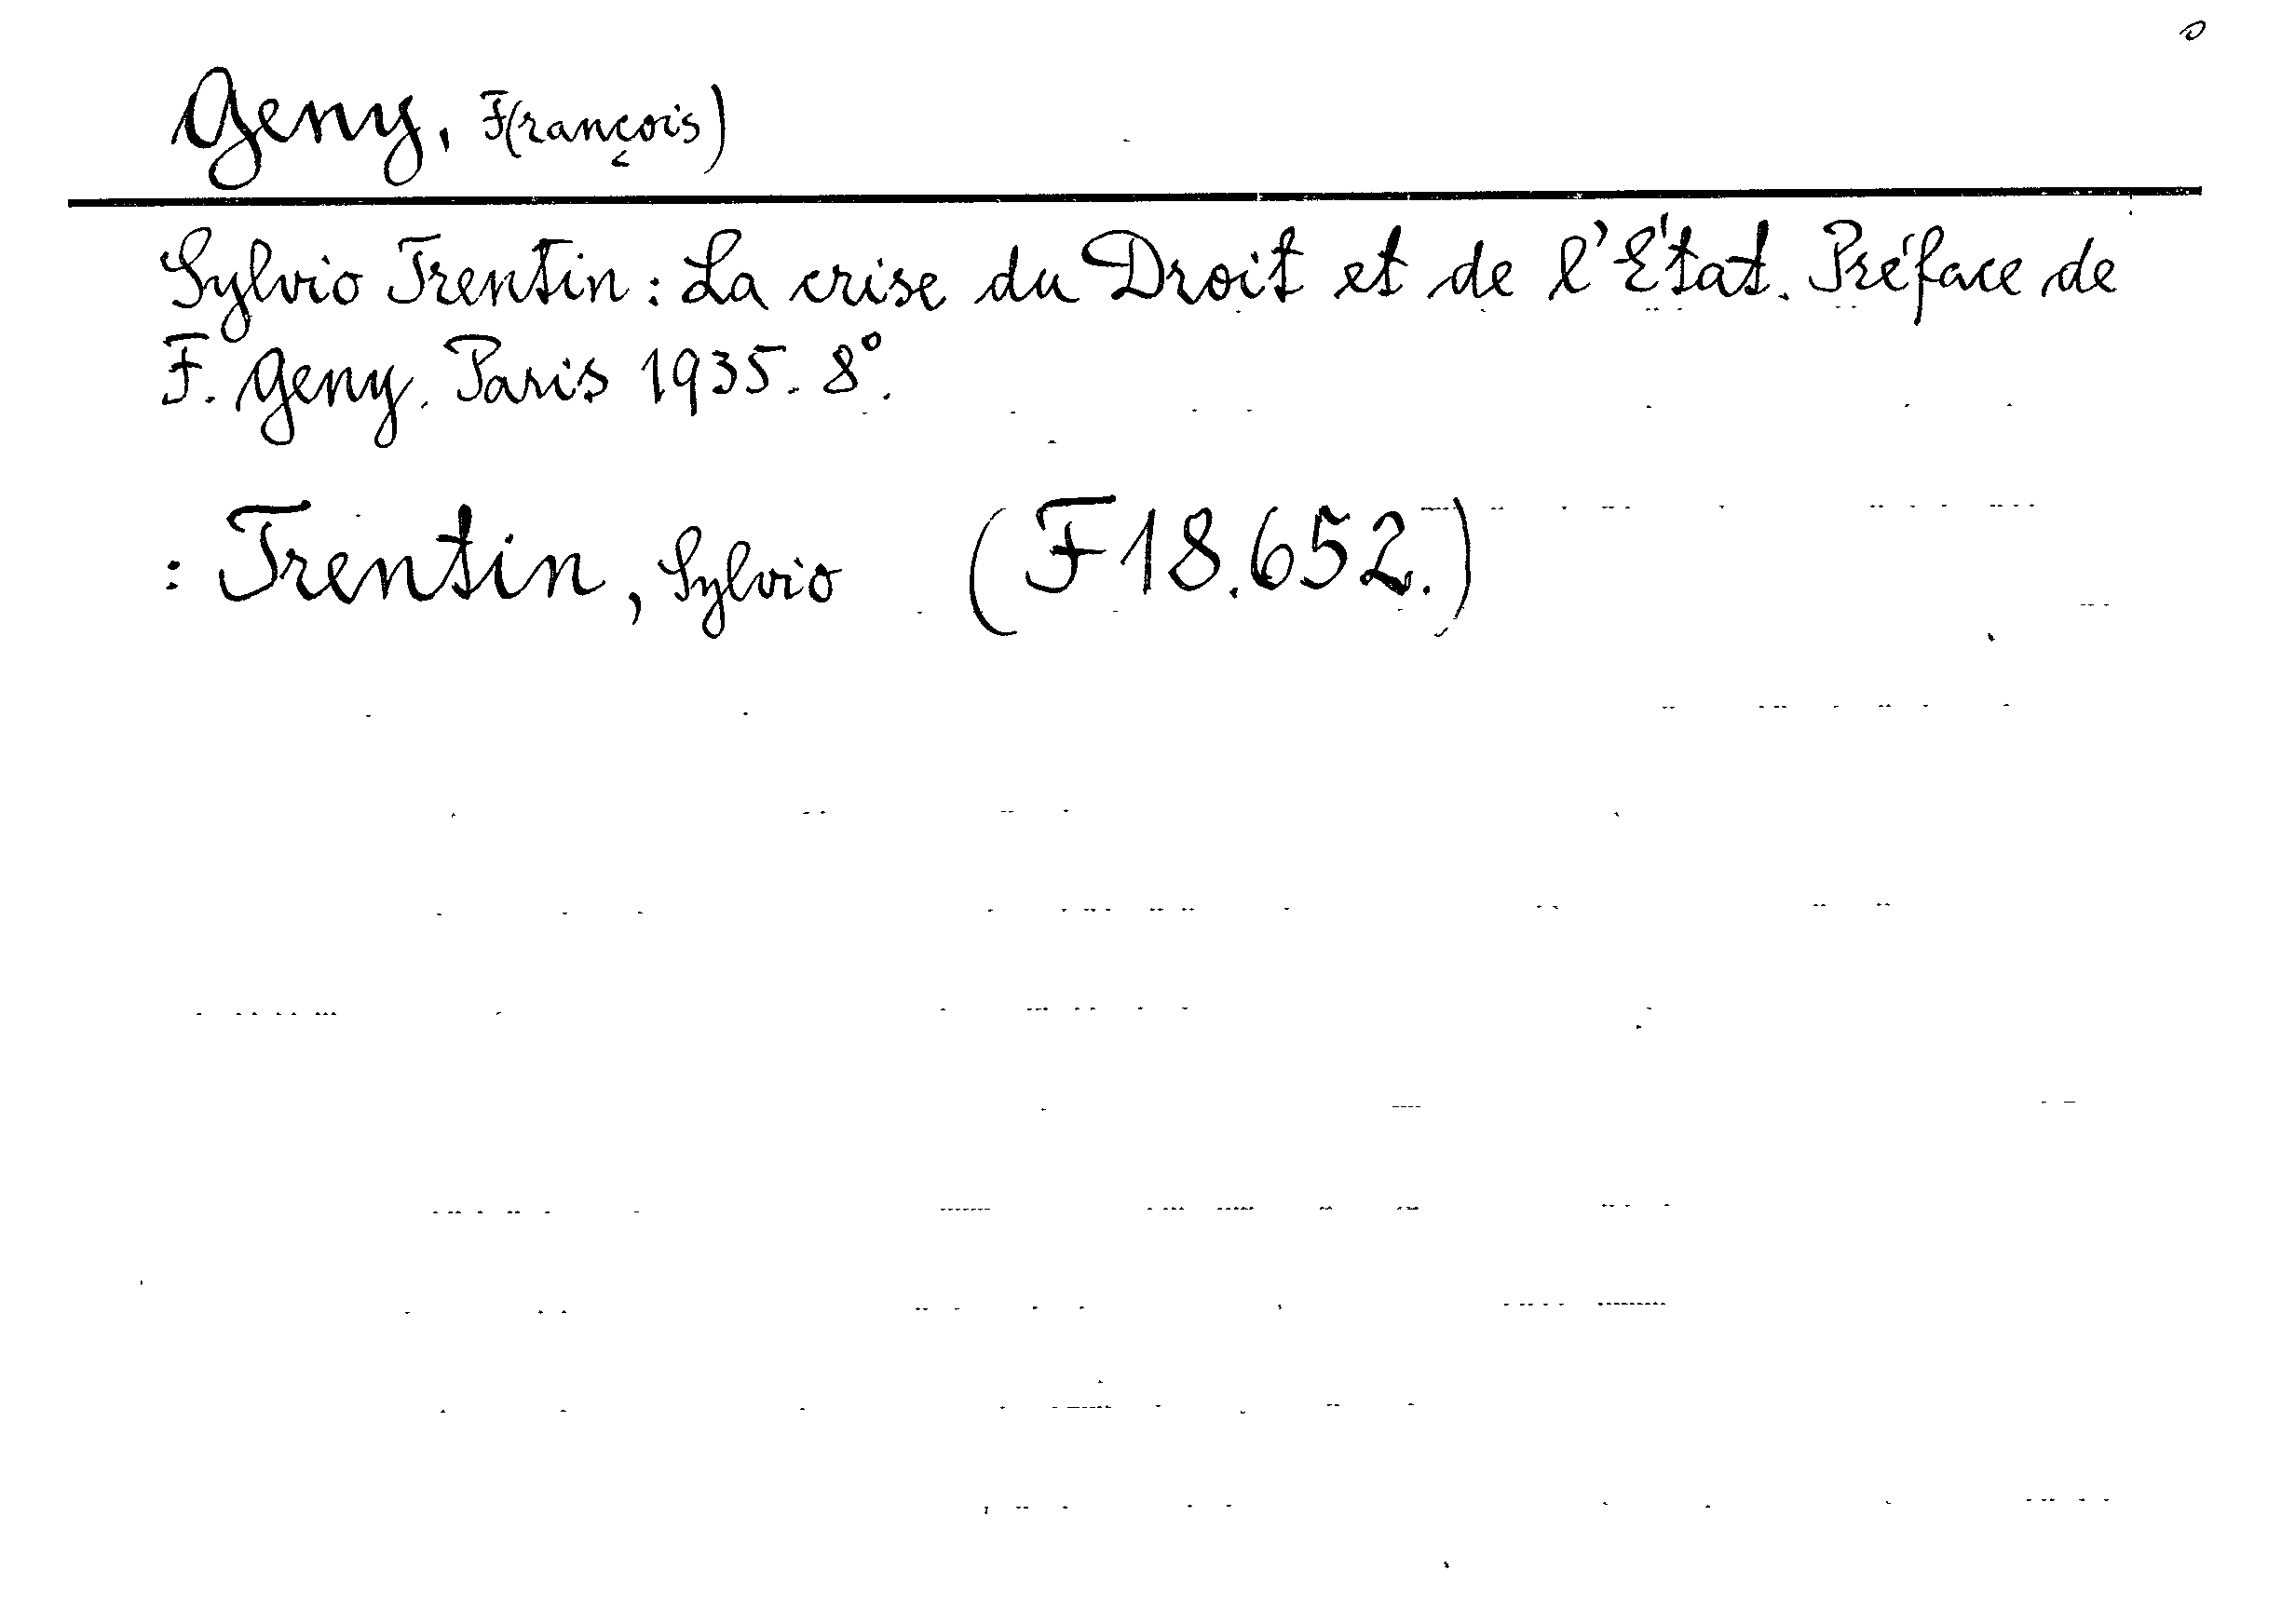 Geny, F(rançois)
Sylvio Trentin: La crise du Droit et de l'État. Préface de
F. Geny. Paris 1935. 8°.
: Trentin, Sylvio (F18.652.)